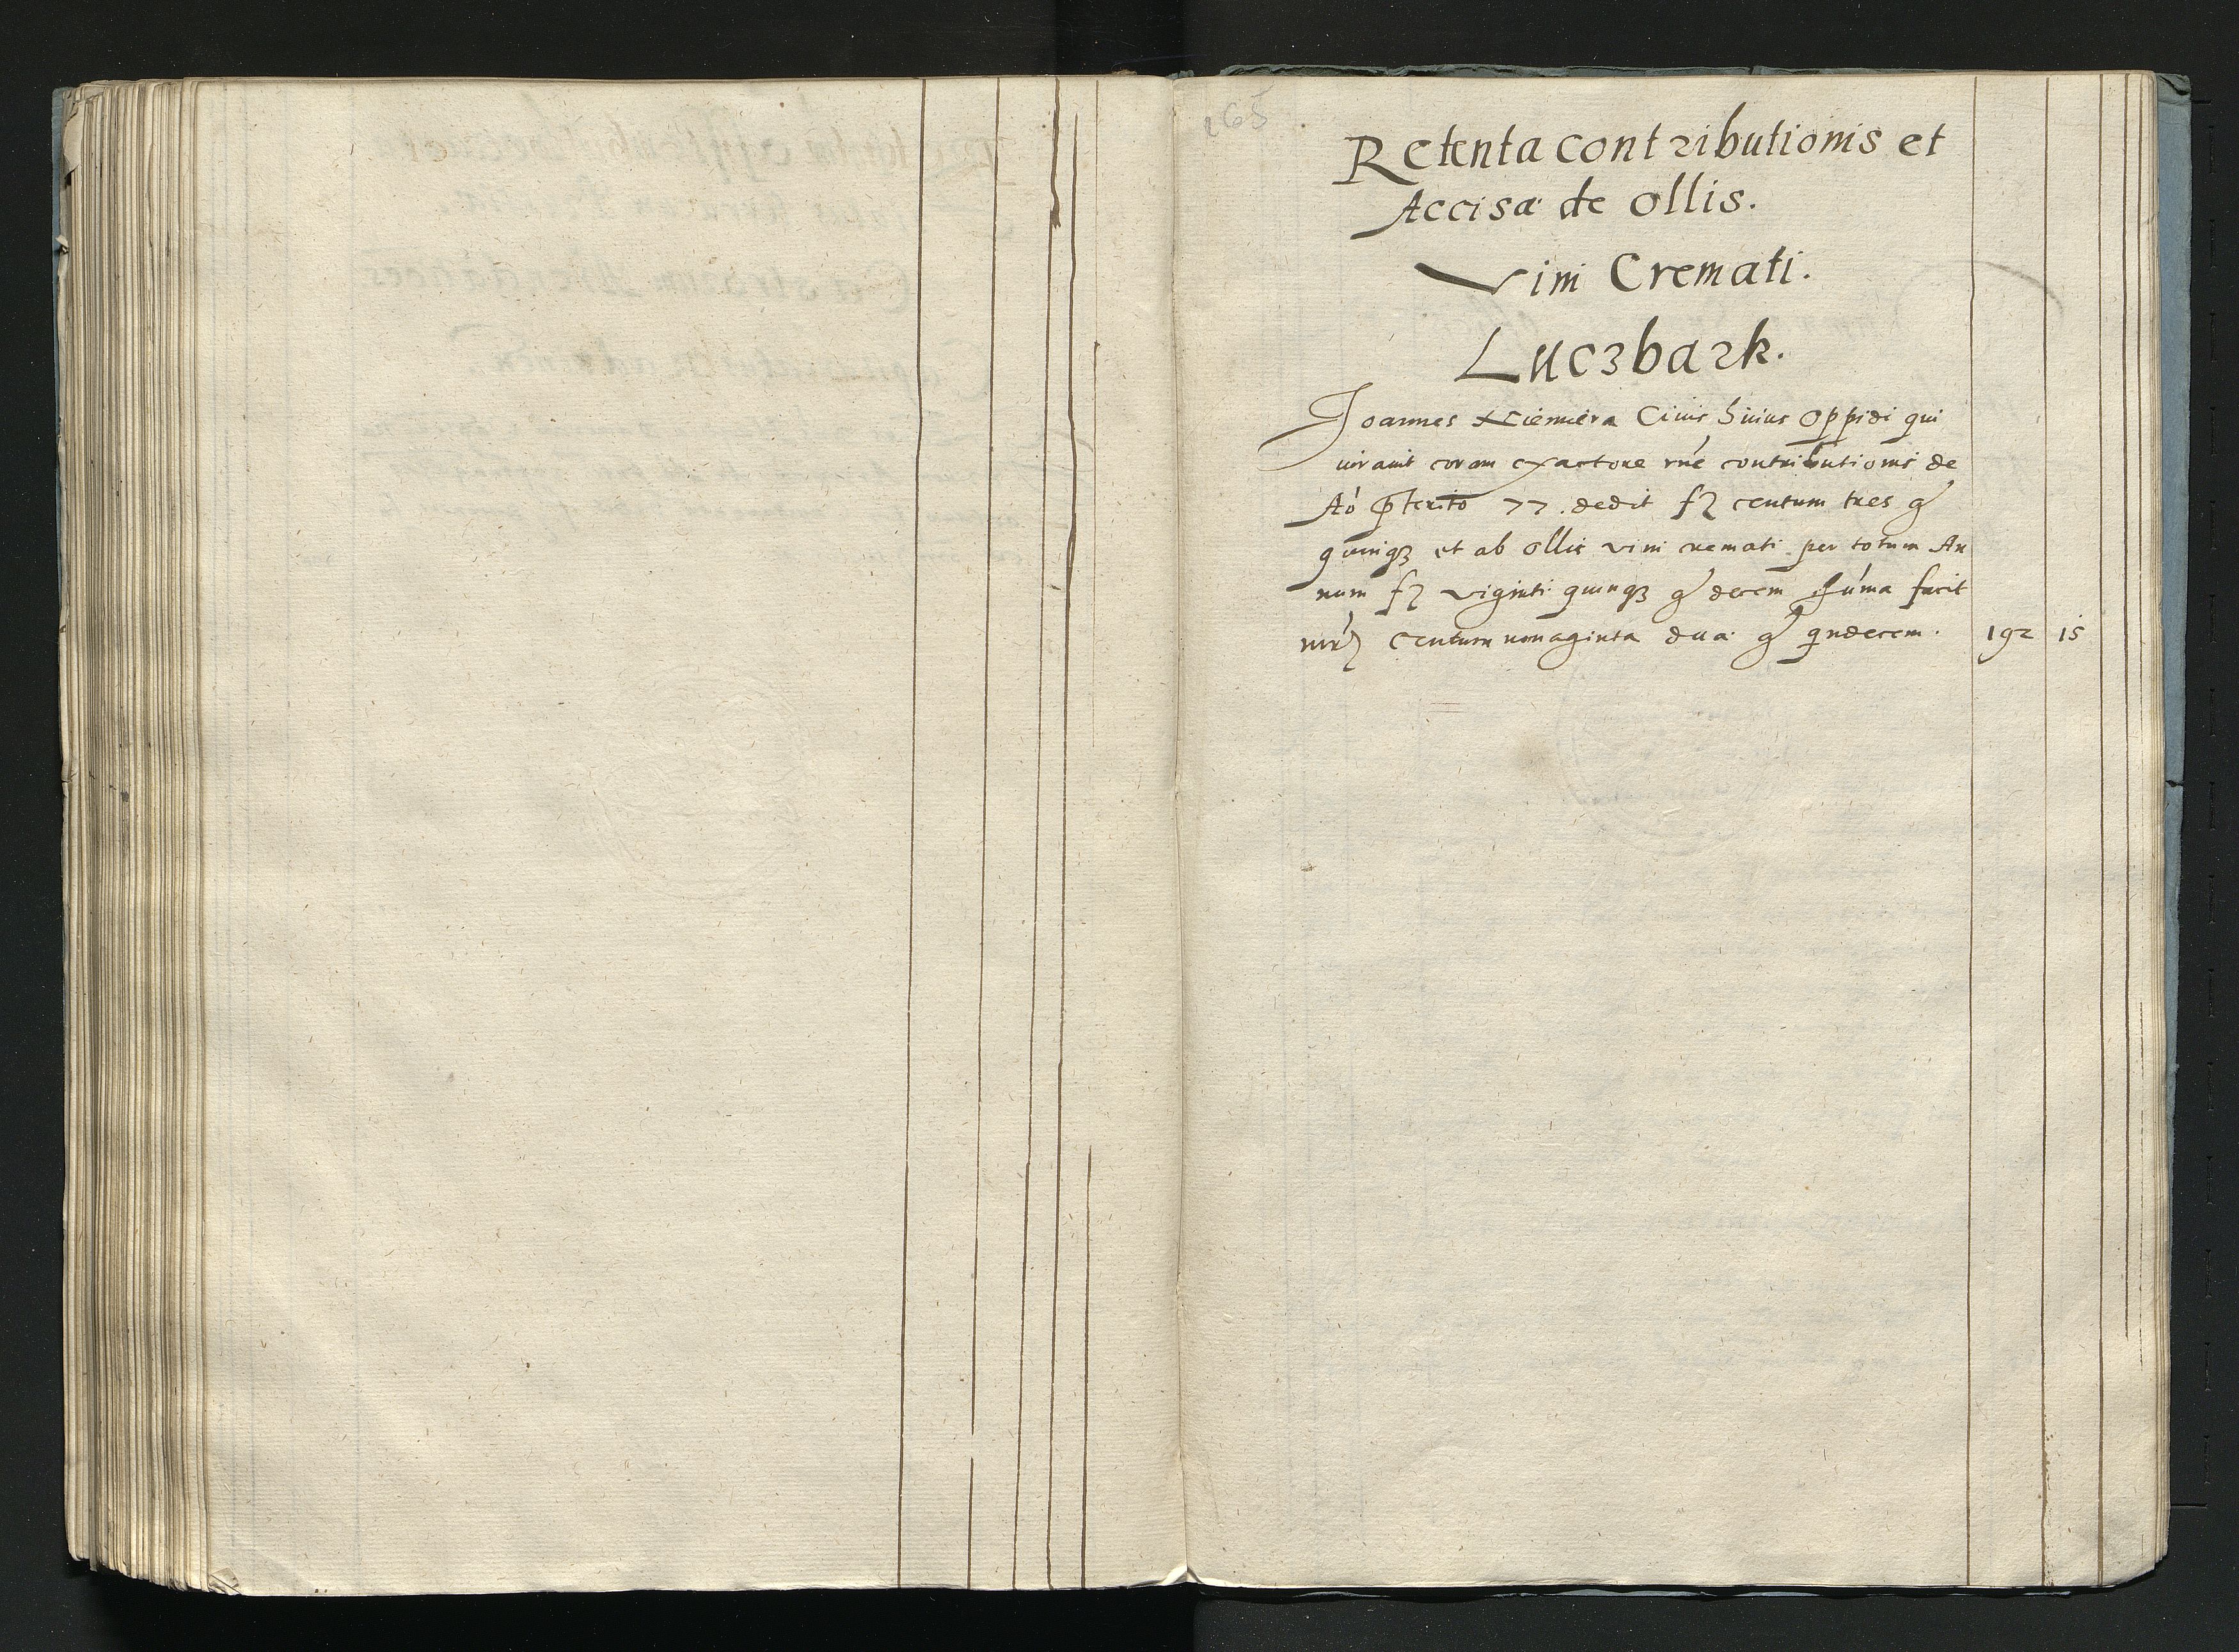 265
Retenta contributionis et
Accisæ de ollis.
Vini Cremati.
Luczbark.
Joannes Niemiera Ciuis huius Oppidi qui
iurauit coram exactore rn̄e contributionis de
Aó p̄terito 77. dedit fl centum tres g
quinqꝫ et ab ollis vini cremati per totum An
num fl viginti quinqꝫ g decem Súma facit
mr̄ centum nonaginta duæ g qndecem. 192 15